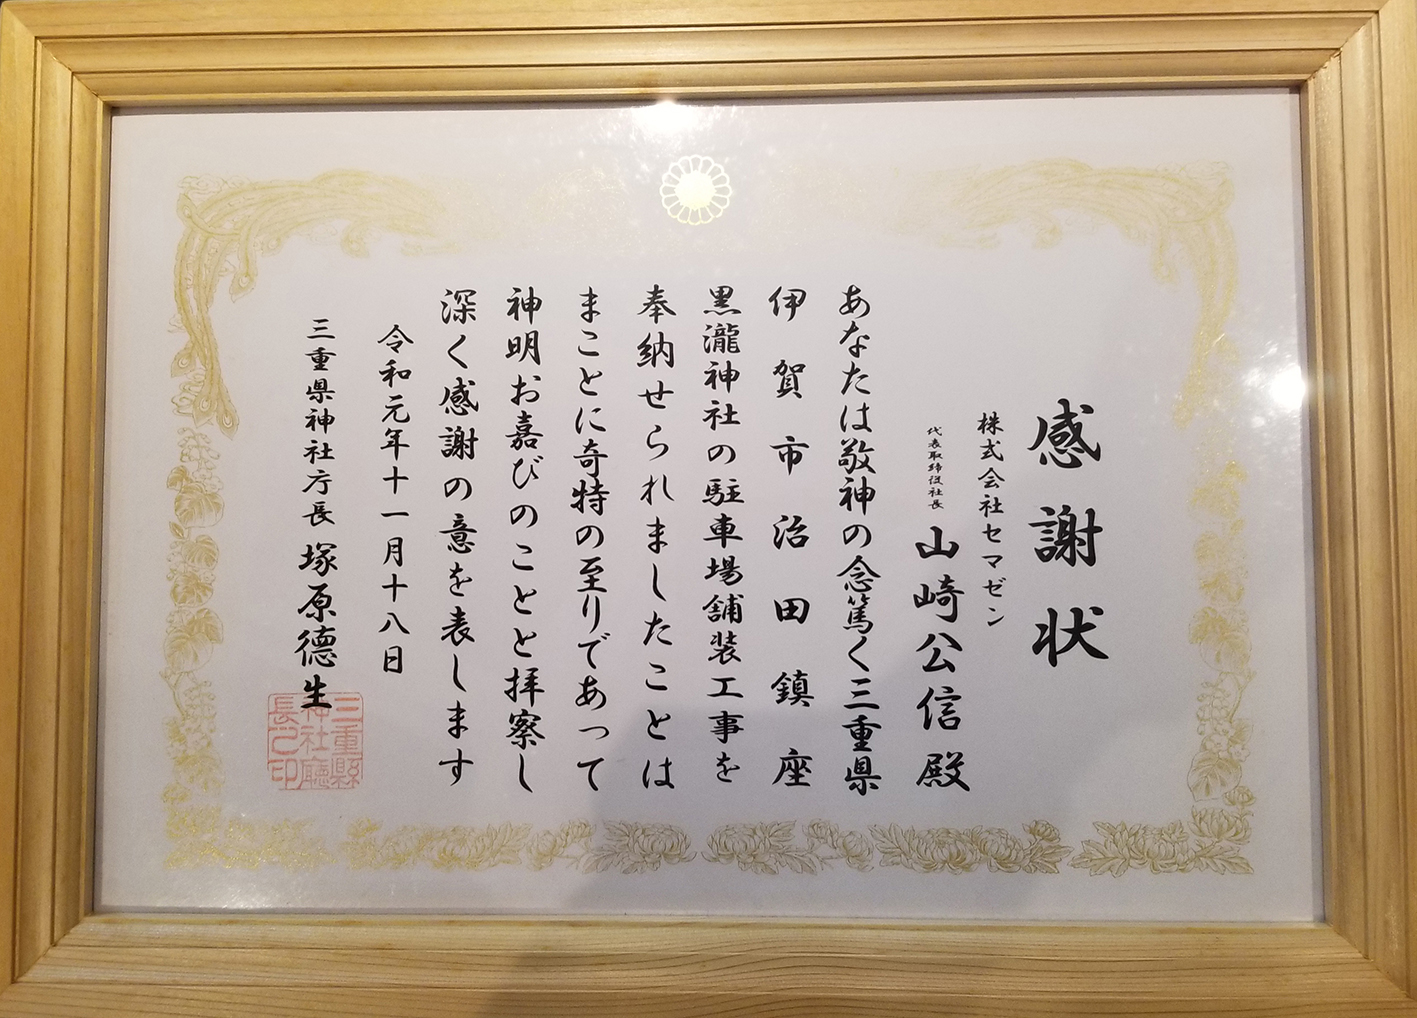 感謝状
株式会社セマゼン
代表取締役社長 山崎公信殿
あなたは敬神の念篤く三重県
伊賀市治田鎮座
黒瀧神社の駐車場舗装工事を
奉納せられましたことは
まことに奇特の至りであって
神明お嘉びのことと拝察し
深く感謝の意を表します
令和元年十一月十八日
三重県神社庁長 塚原徳生
三重縣
神社廳
長之印